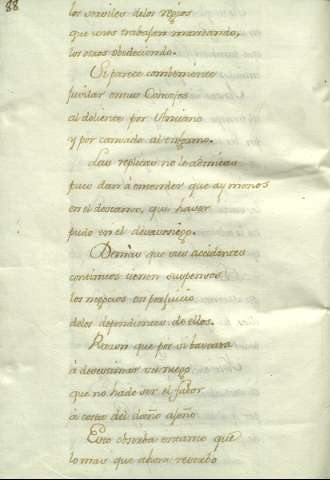 88
los serviles delos regios
que unos trabajan mandando,
los otros obedeciendo.
Si parece combeniente
jubilar en tus Consejos
al doliente por Anciano
y por cansado al enfermo.
Las replicas no le admitas
pues dan à entender que ay menos
en el descanso, que haver
puro en el desasosiego.
Demàs que sus accidentes
continuos tienen suspensos
los negocios en perjuicio
delos dependientes de ellos.
Razon que por si bastara
à desestimar su ruego
que no hade ser el fabor
à costa del daño ageno
Esto observa en tanto que
lo mas que ahora reservo